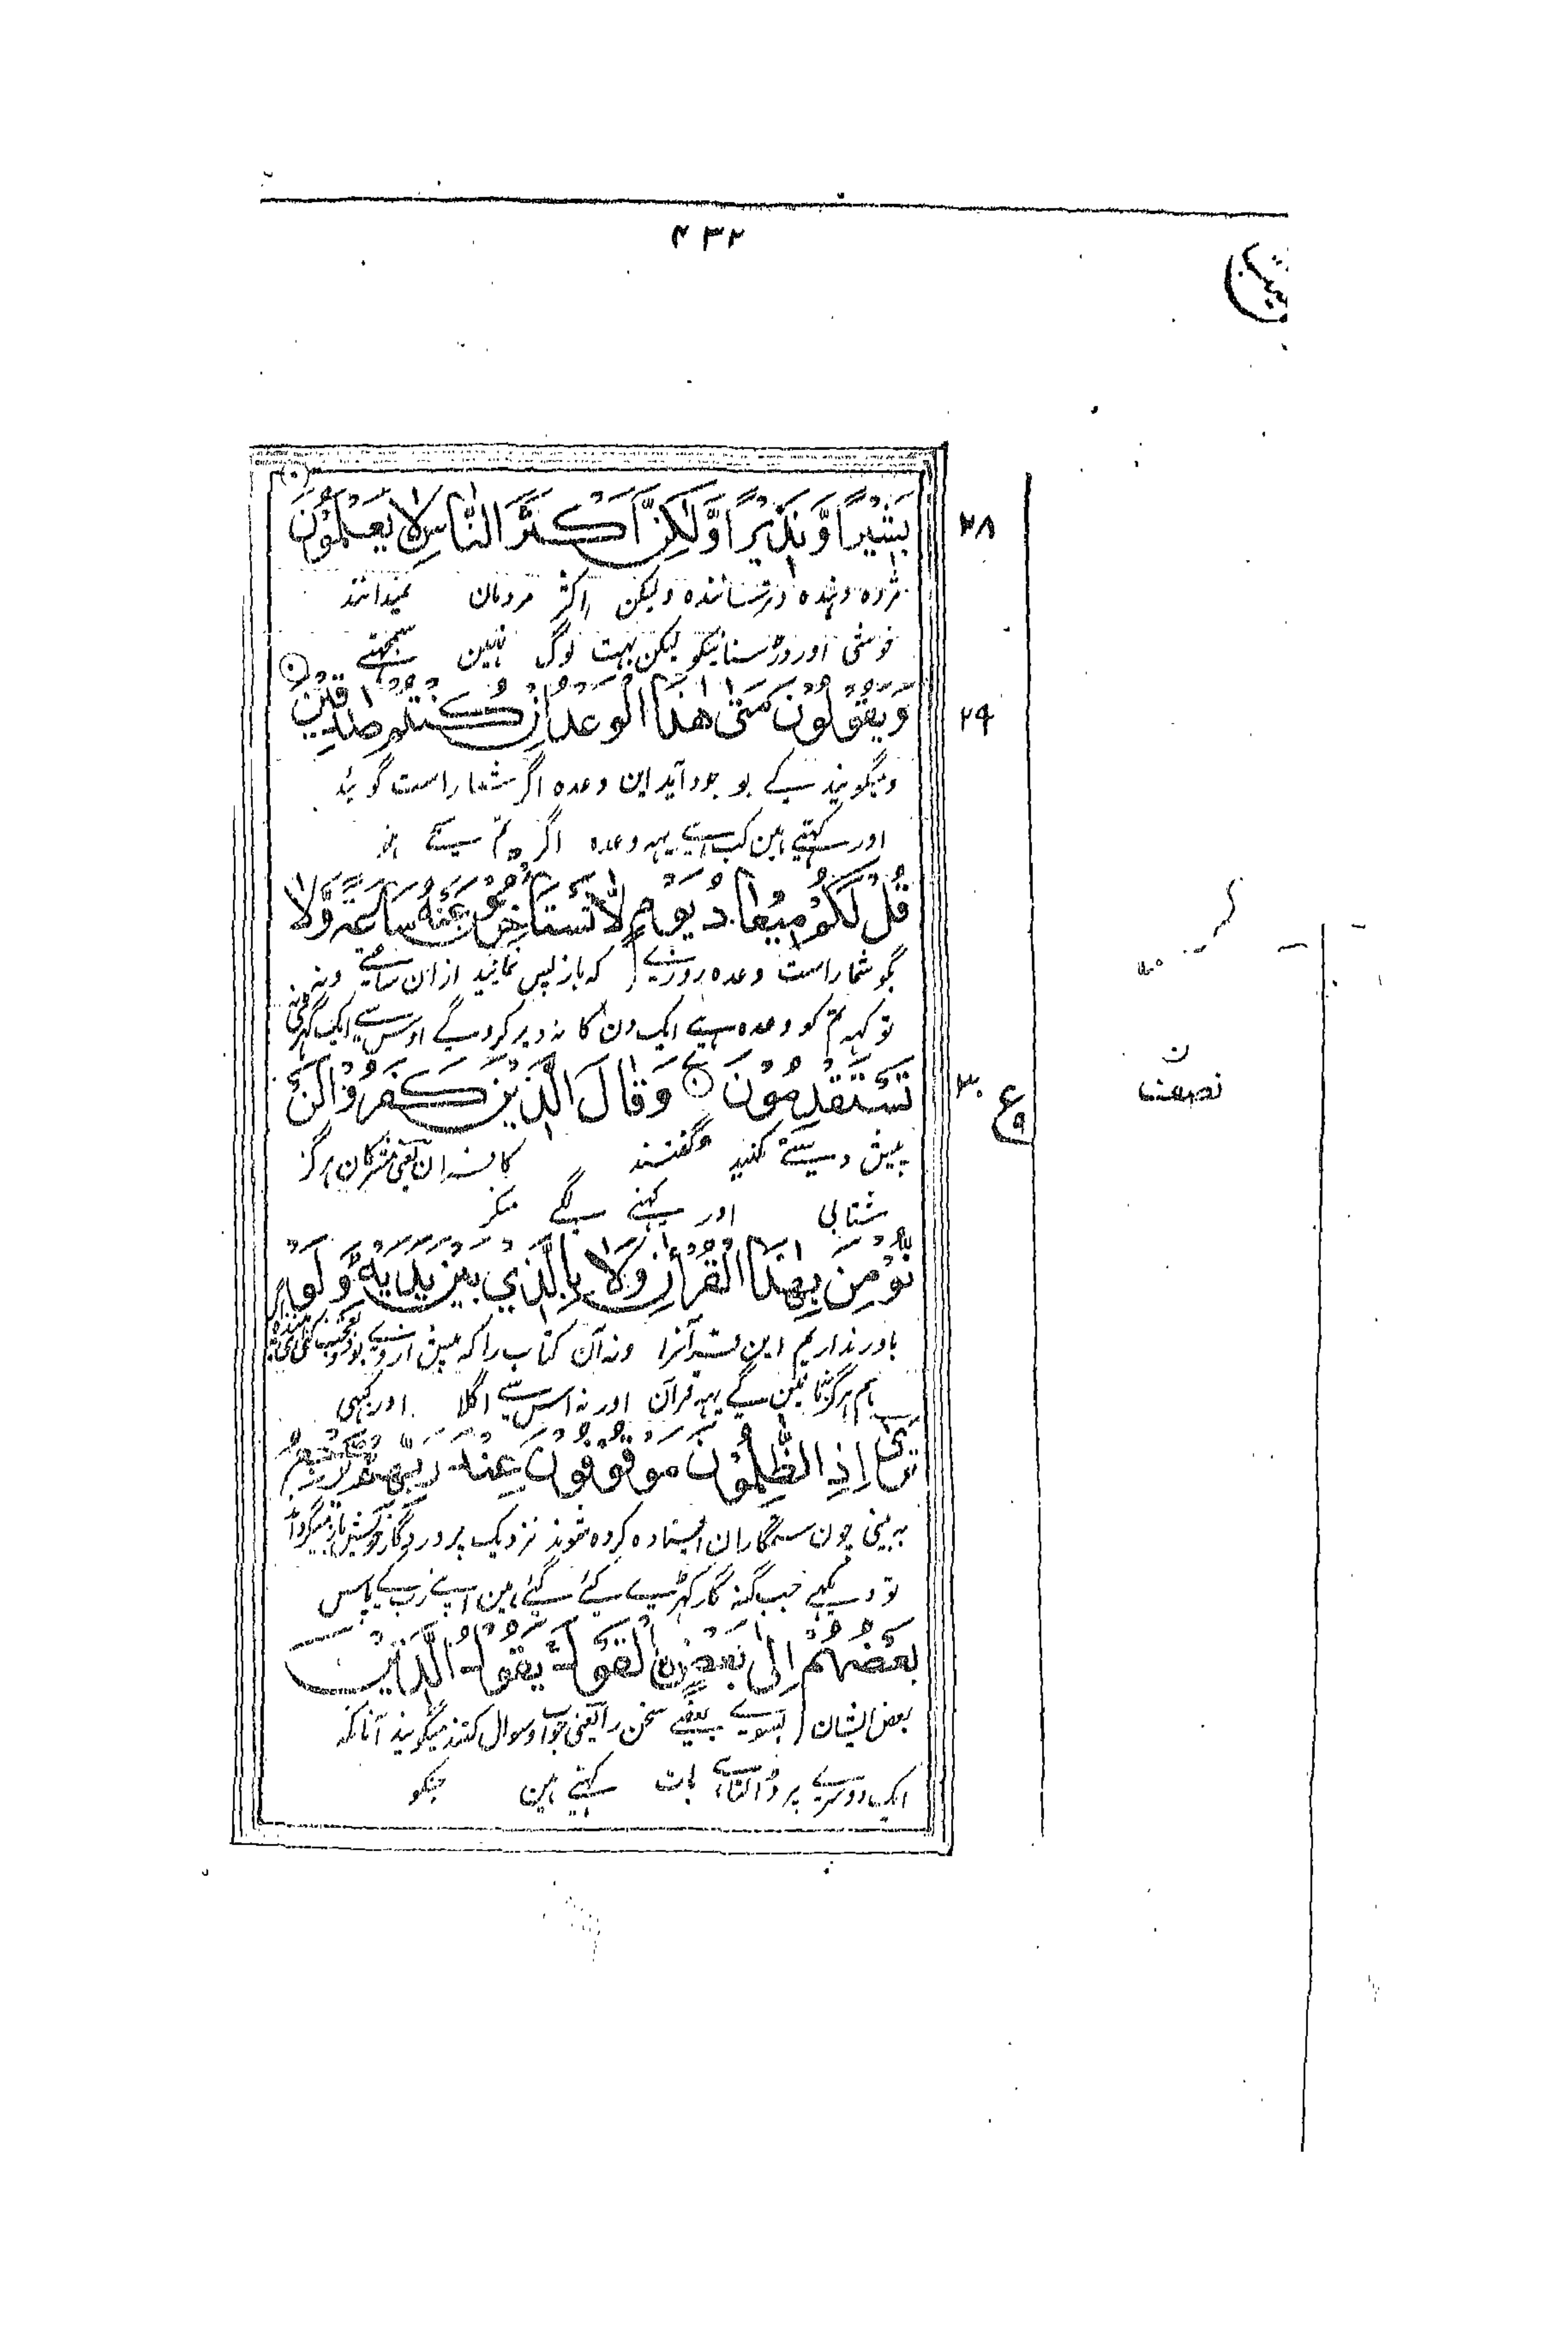 ۴۳۲
بَشِيْرًا وَّنَذِيْرًا وَّلٰكِنَّ اَكْثَرَ النَّاسِ لَا يَعْلَمُوْنَ
۲۸
مژده دهنده و ترساننده ولیکن اکثر مردمان نمیدانند
خوشی اور ڈر سنانیکو لیکن بہت لوگ نہین سمجھتے
وَيَقُوْلُوْنَ مَتٰى هٰذَا الْوَعْدُ اِنْ كُنْتُمْ صٰدِقِيْنَ
۲۹
ومیگویند کے بوجود آید این وعده اگر شما راست گوئید
اور کہتے ہین کب ہے یہہ وعدہ اگر تم سچے ہو
قُلْ لَّكُمْ مِّيْعَادُ يَوْمٍ لَّا تَسْتَأْخِرُوْنَ عَنْهُ سَاعَةً وَّلَا
بگو شما راست وعده روزے که باز پس نمانید ازان ساعتے ونه
تو کہہ تم کو وعدہ ہے ایک دن کا نہ دیر کروگے اوس سے ایک گہڑی نہ
تَسْتَقْدِمُوْنَ وَقَالَ الَّذِيْنَ كَفَرُوْا لَنْ
۳۰
ع
پیش دستی کنید وگفتند کافران یعنی مشرکان ہرگز
شتابی اور کہنے لگے منکر
نُّؤْمِنَ بِهٰذَا الْقُرْاٰنِ وَلَا بِالَّذِيْ بَيْنَ يَدَيْهِ وَلَوْ
باور نداریم این قرآنرا ونه آن کتاب را که پیش از وے بود
ہم ہرگز نمانین گے یہہ قرآن اور نہ اس سے اگلا اور کبہی
تَرٰى اِذِ الظّٰلِمُوْنَ مَوْقُوْفُوْنَ عِنْدَ رَبِّهِمْ يَرْجِعُ
به بینی چون ستمگاران ایستاده کرده شوند نزدیک پروردگار خویش باز میگرداند
تو دیکہے جب گنہگار کہڑے کئے گئے ہین اپنے رب کے پاس
بَعْضُهُمْ اِلٰى بَعْضِ ِۨالْقَوْلَ يَقُوْلُ الَّذِيْنَ
بعض ایشان بسوے بعضے سخن را یعنی جواب وسوال کنند میگویند آنانکه
ایک دوسرے پر ڈالتا ہے بات کہتے ہین جنکو
نصف